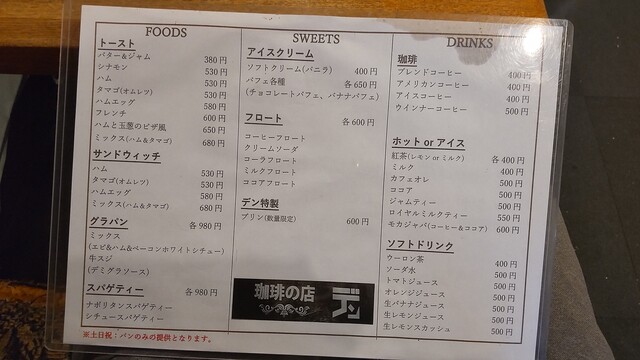 FOODS
トースト
バター＆ジャム 380円
シナモン 530円
ハム 530円
タマゴ(オムレツ) 530円
ハムエッグ 580円
フレンチ 600円
ハムと玉葱のピザ風 650円
ミックス(ハム＆タマゴ) 680円
サンドウィッチ
ハム 530円
タマゴ(オムレツ) 530円
ハムエッグ 580円
ミックス(ハム＆タマゴ) 680円
グラパン 各980円
ミックス
(エビ&ハム&ベーコンホワイトシチュー)
牛スジ
(デミグラソース)
スパゲティー 各980円
ナポリタンスパゲティー
シチュースパゲティー
※土日祝：パンのみの提供となります。
SWEETS
アイスクリーム
ソフトクリーム(バニラ) 400円
パフェ各種 各650円
(チョコレートパフェ、バナナパフェ)
フロート 各600円
コーヒーフロート
クリームソーダ
コーラフロート
ミルクフロート
ココアフロート
デン特製
プリン(数量限定) 600円
珈琲の店 デン
DRINKS
珈琲
ブレンドコーヒー 400円
アメリカンコーヒー 400円
アイスコーヒー 400円
ウインナーコーヒー 500円
ホット or アイス
紅茶(レモン or ミルク) 各400円
ミルク 400円
カフェオレ 500円
ココア 500円
ジャムティー 500円
ロイヤルミルクティー 550円
モカジャバ(コーヒー&ココア) 600円
ソフトドリンク
ウーロン茶 400円
ソーダ水 500円
トマトジュース 500円
オレンジジュース 500円
生バナナジュース 500円
生レモンジュース 500円
生レモンスカッシュ 500円